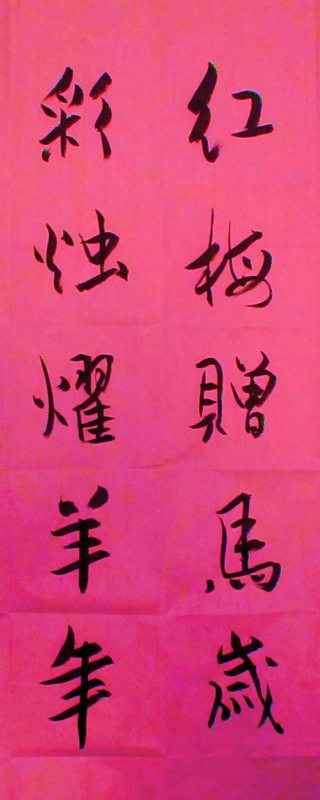 红梅贈馬歲
彩烛耀羊年